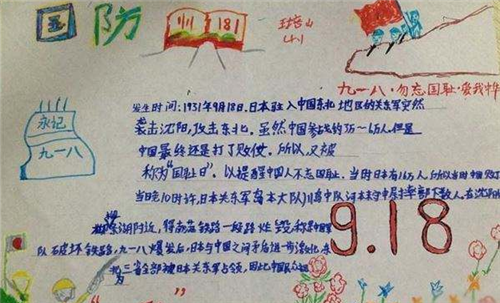 国防
九一八
永记
九一八
九一八·勿忘国耻·爱我中华
发生时间:1931年9月18日,日本驻入中国东北地区的关东军突然
袭击沈阳,攻击东北。虽然中国参战约 万人,但是
中国最终还是打了败仗。所以,又被
称为"国耻日",以提醒中国人不忘国耻。当时日本有 万人,所以当时中国
当日晚10时许,日本关东军岛本大队川岛中队河本末守中尉率部下数人,在沈阳
湖附近,将南满铁路一段路 炸毁,称是中国军
队破坏铁路,九一八爆发后,日本与中国之间矛盾进一步激化,
三省全部被日本关东军占领,因此中国民众
9.18